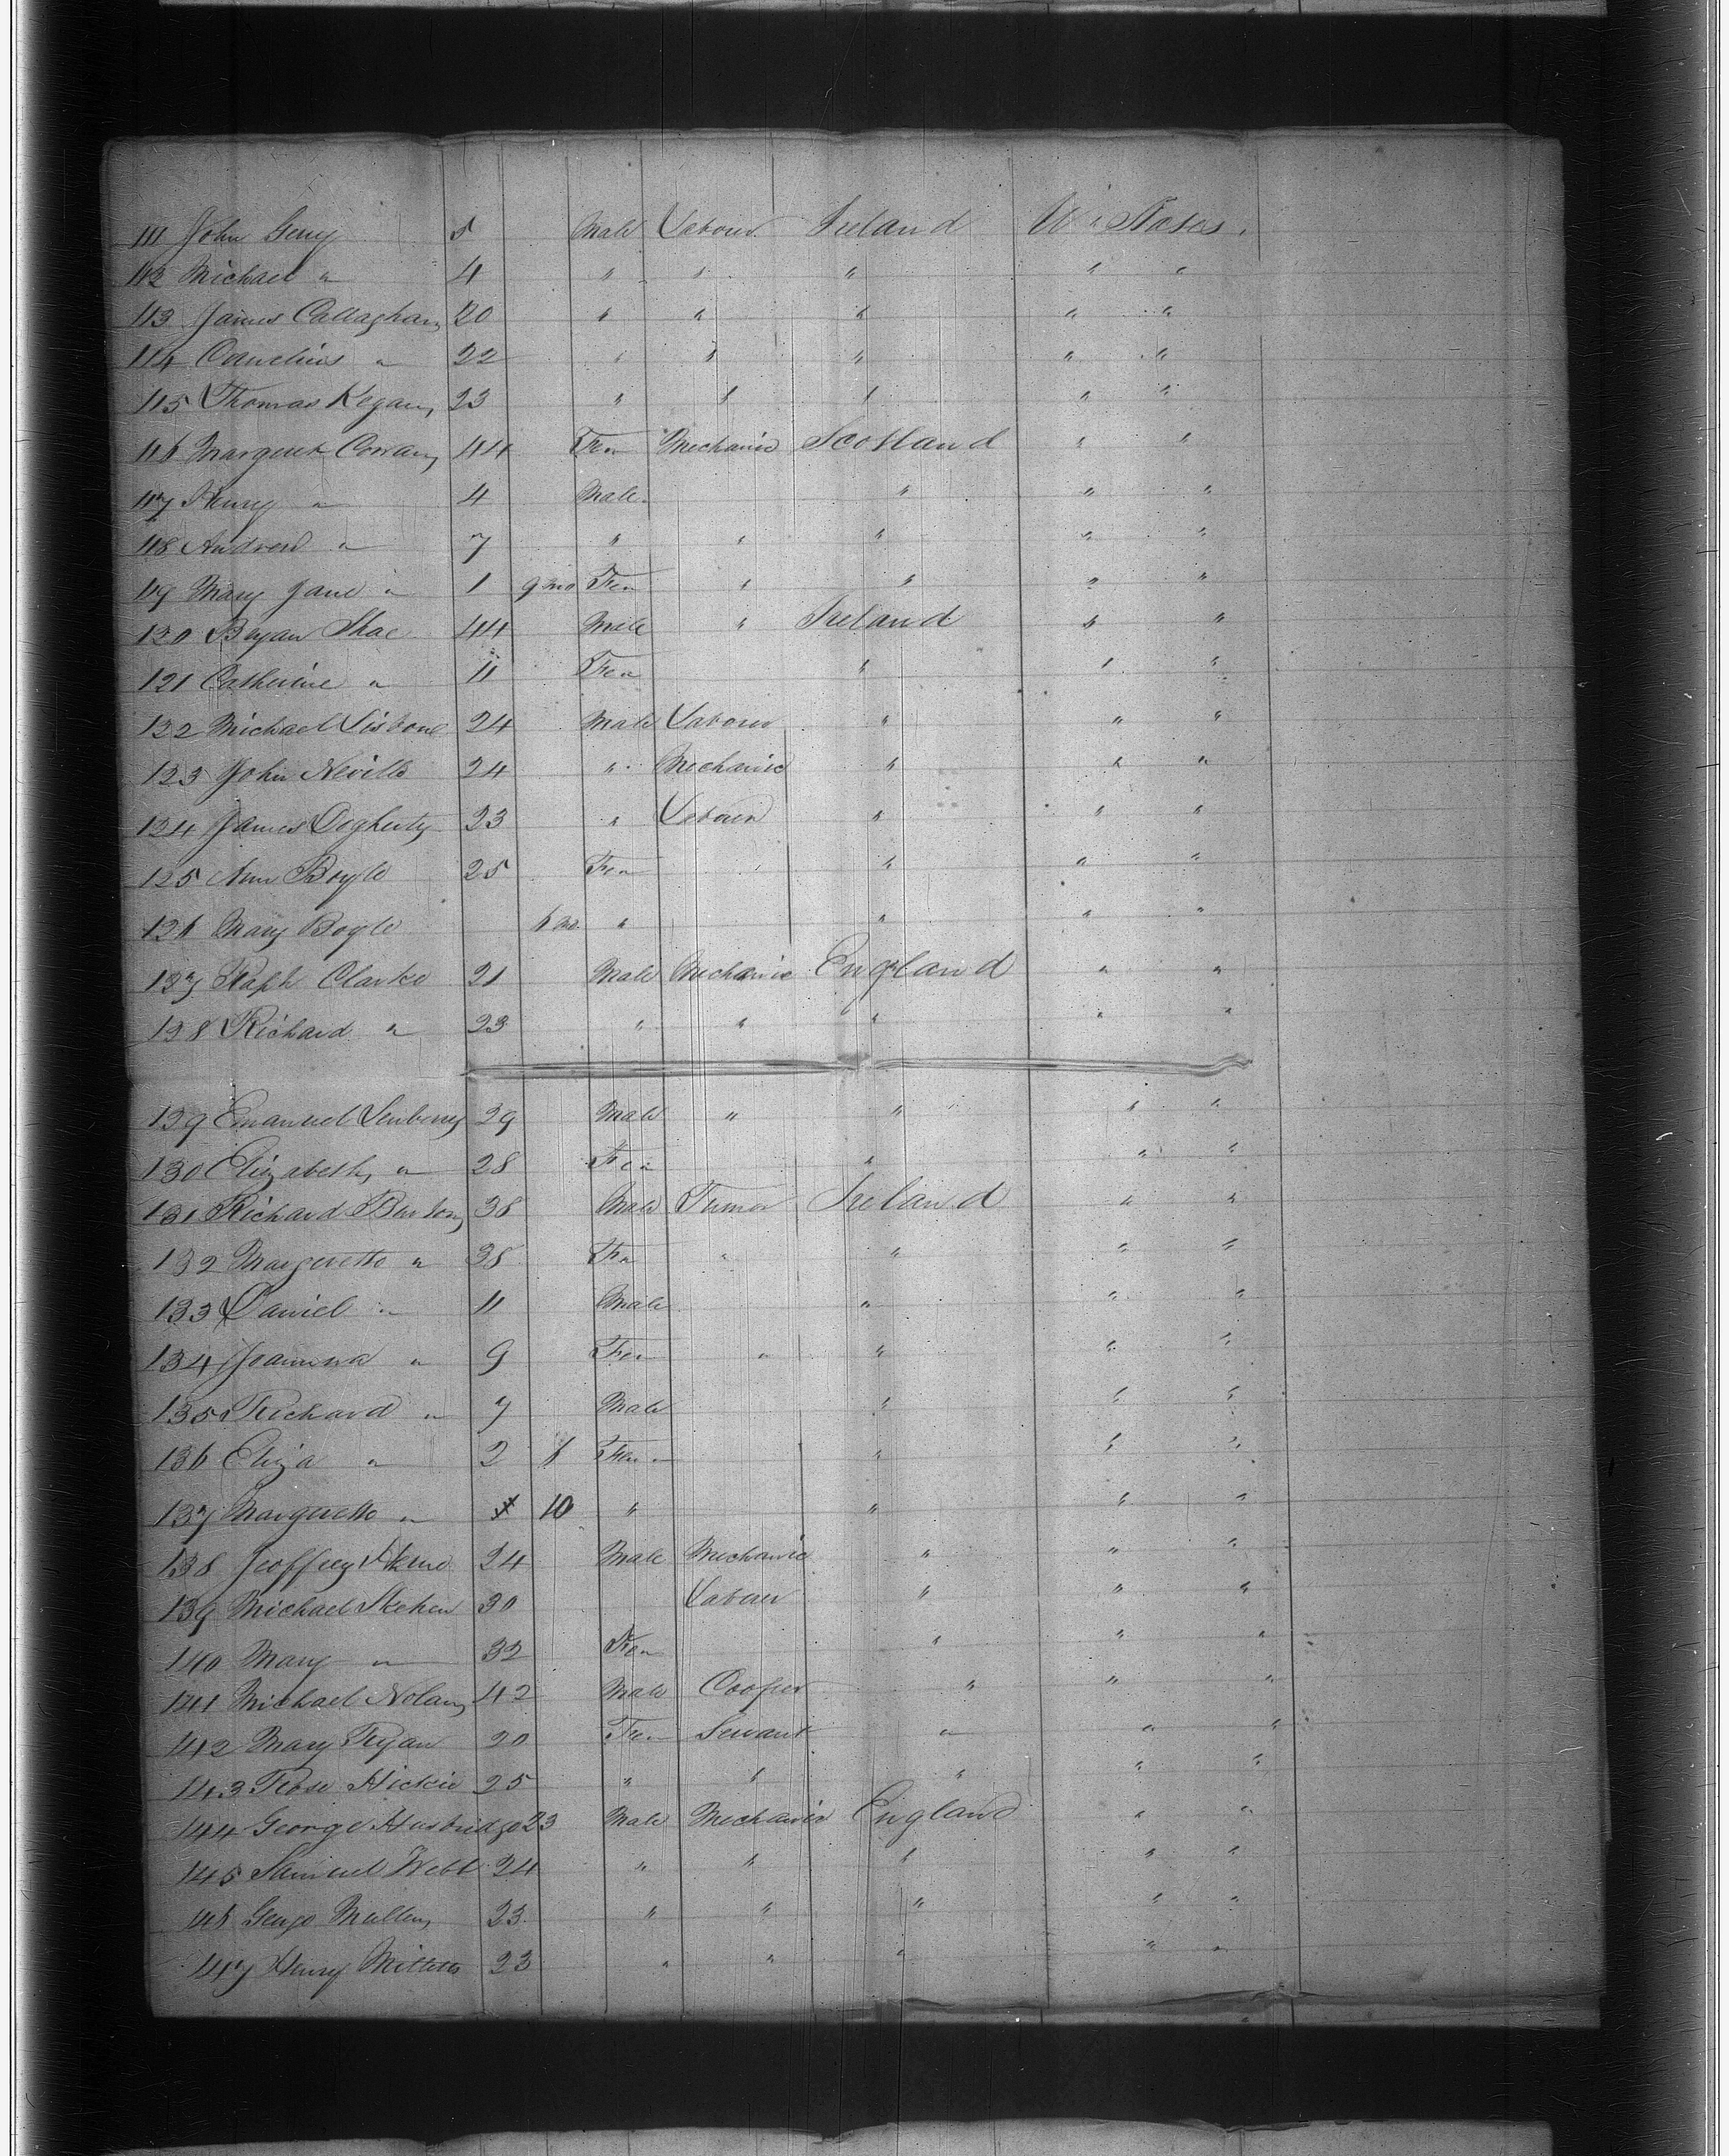 111 John Geny 5 Male Labour Ireland U. States.
112 Michael " 4 " " " " "
113 James Callaghan 20 " " " " "
114 Cornelius " 22 " " " " "
115 Thomas Kegan 23 " " " " "
116 Margeret Cowan 44 Fem Mechanic Scotland " "
117 Henry " 4 Male " " "
118 Andrew " 7 " " " " "
119 Mary Jane " 1 9 mo Fem " " " "
120 Bryan Shae 44 Male " Ireland " "
121 Catherine " 11 Fem " " "
122 Michael Lisbone 24 Male Labour " " "
123 John Nevills 24 " Mechanic " " "
124 James Dogherty 23 " Labour " " "
125 Ann Boyle 25 Fem " " "
126 Mary Boyle 6 mo. " " " "
127 Raph Clarke 21 Male Mechanic England " "
128 Richard " 23 " " " " "
129 Emanuel Lenberry 29 Male " " " "
130 Elizabeth " 28 Fem " " "
131 Richard Burton 38 Male Ireland " "
132 Margerette " 38 Fem " " " "
133 Daniel " 11 Male " " "
134 Joanna " 9 Fem " " " "
135 Richard " 7 Male " " "
136 Eliza " 2 Fem " " "
137 Marguette " 10 " " " "
138 Jeoffrey 24 Male Mechanic " " "
139 Michael Skehen 30 Labour " " "
140 Mary " 32 Fem " " "
141 Michael Nolan 42 Male Cooper " " "
142 Mary Ryan 20 Fem Servant " " "
143 Rose Hickie 25 " " " " "
144 George Husbridge 23 Male Mechanic England " "
145 Samuel Webb 24 " " " " "
146 George Mullen 23 " " " " "
147 Henry Mitten 23 " " " " "